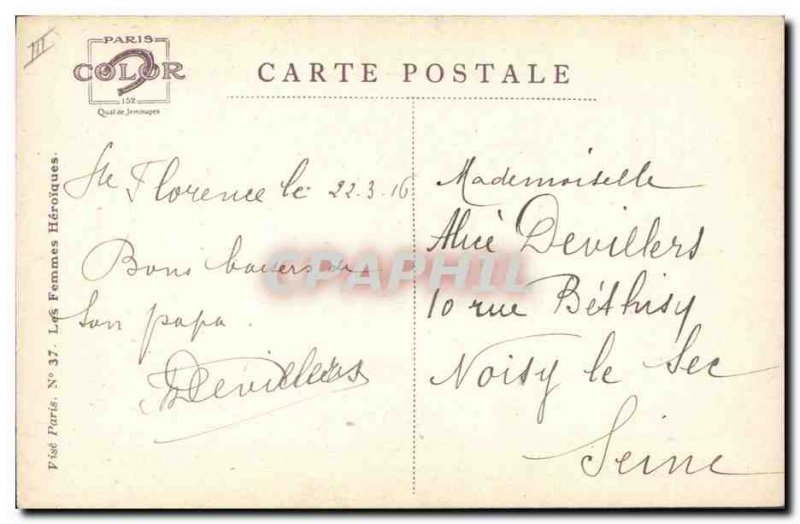 III
PARIS
COLOR
152
Quai de Jemmapes
CARTE POSTALE
Ste Florence le 22.3.16
Bons baisers de
ton papa.
Devillers
Mademoiselle
Alice Devillers
10 rue Béthisy
Noisy le Sec
Seine
Visé Paris. N° 37. Les Femmes Héroïques.
CPAPHIL